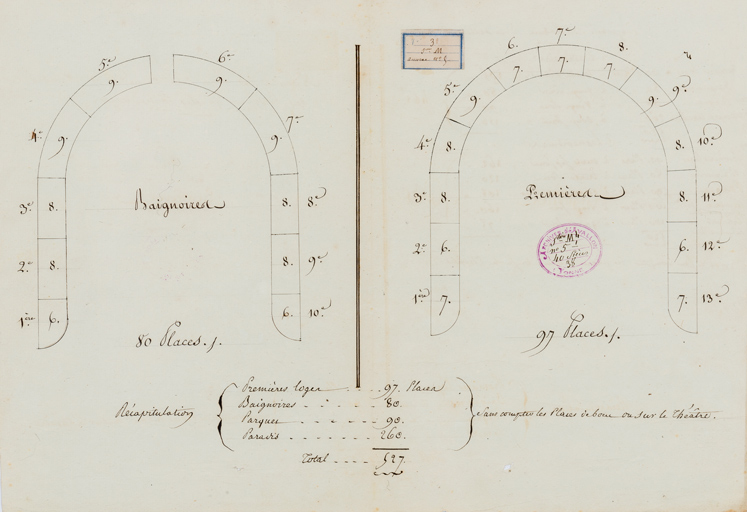 5e 6e
9. 9.
4e 9. 9. 7e
3e 8. Baignoires 8. 8e
2e 8. 8. 9e
1ère 6. 6. 10e
80 Places.
6. 7e 8.
7. 7. 7.
5e 9. 9. 9e
4e 8. 8. 10e
3e 8. Premières 8. 11e
2e 6. 6. 12e
1ère 7. 7. 13e
97 Places.
Récapitulation
Premières loges . . . 97. Places
Baignoires . . . 80.
Parquet . . . . 90.
Paradis . . . . . 260.
Total . . . . 527.
Sans compter les Places debout ou sur le Théâtre.